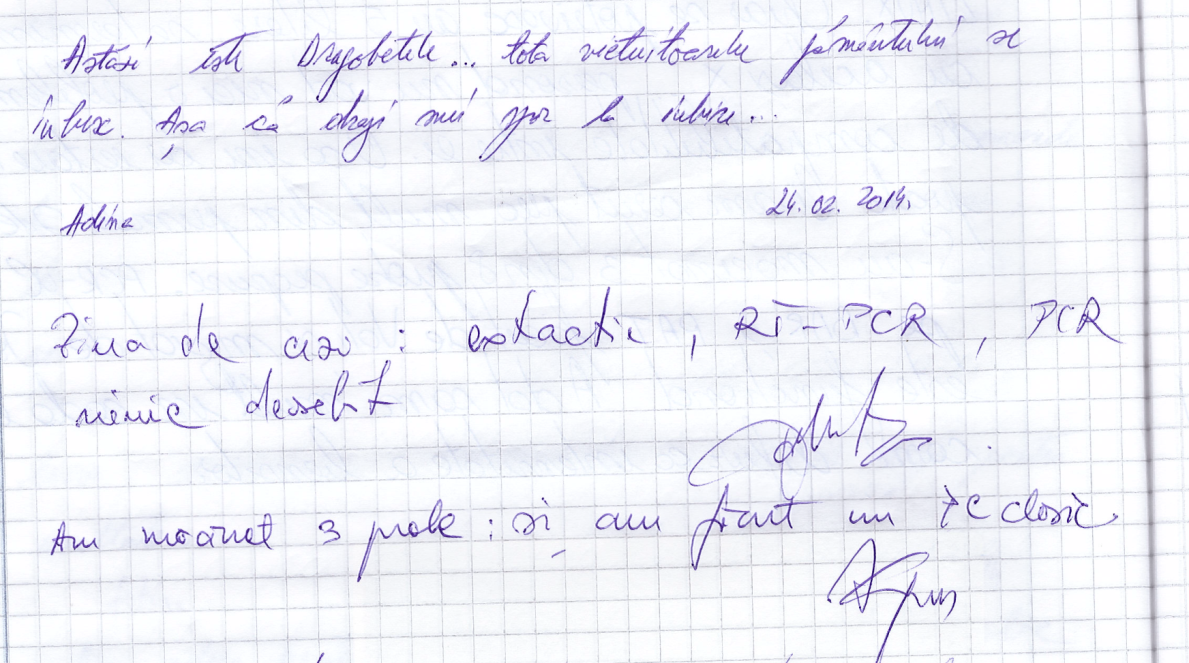 Astazi este Dragobetele... toate vietuitoarele pământului se
iubesc. Așa că dragii mei spor la iubire...
Adina 24.02.2014.
Ziua de azi : extractie , RT-PCR , PCR
nimic deosebit
Am 3 probe ; și am făcut un clasic.